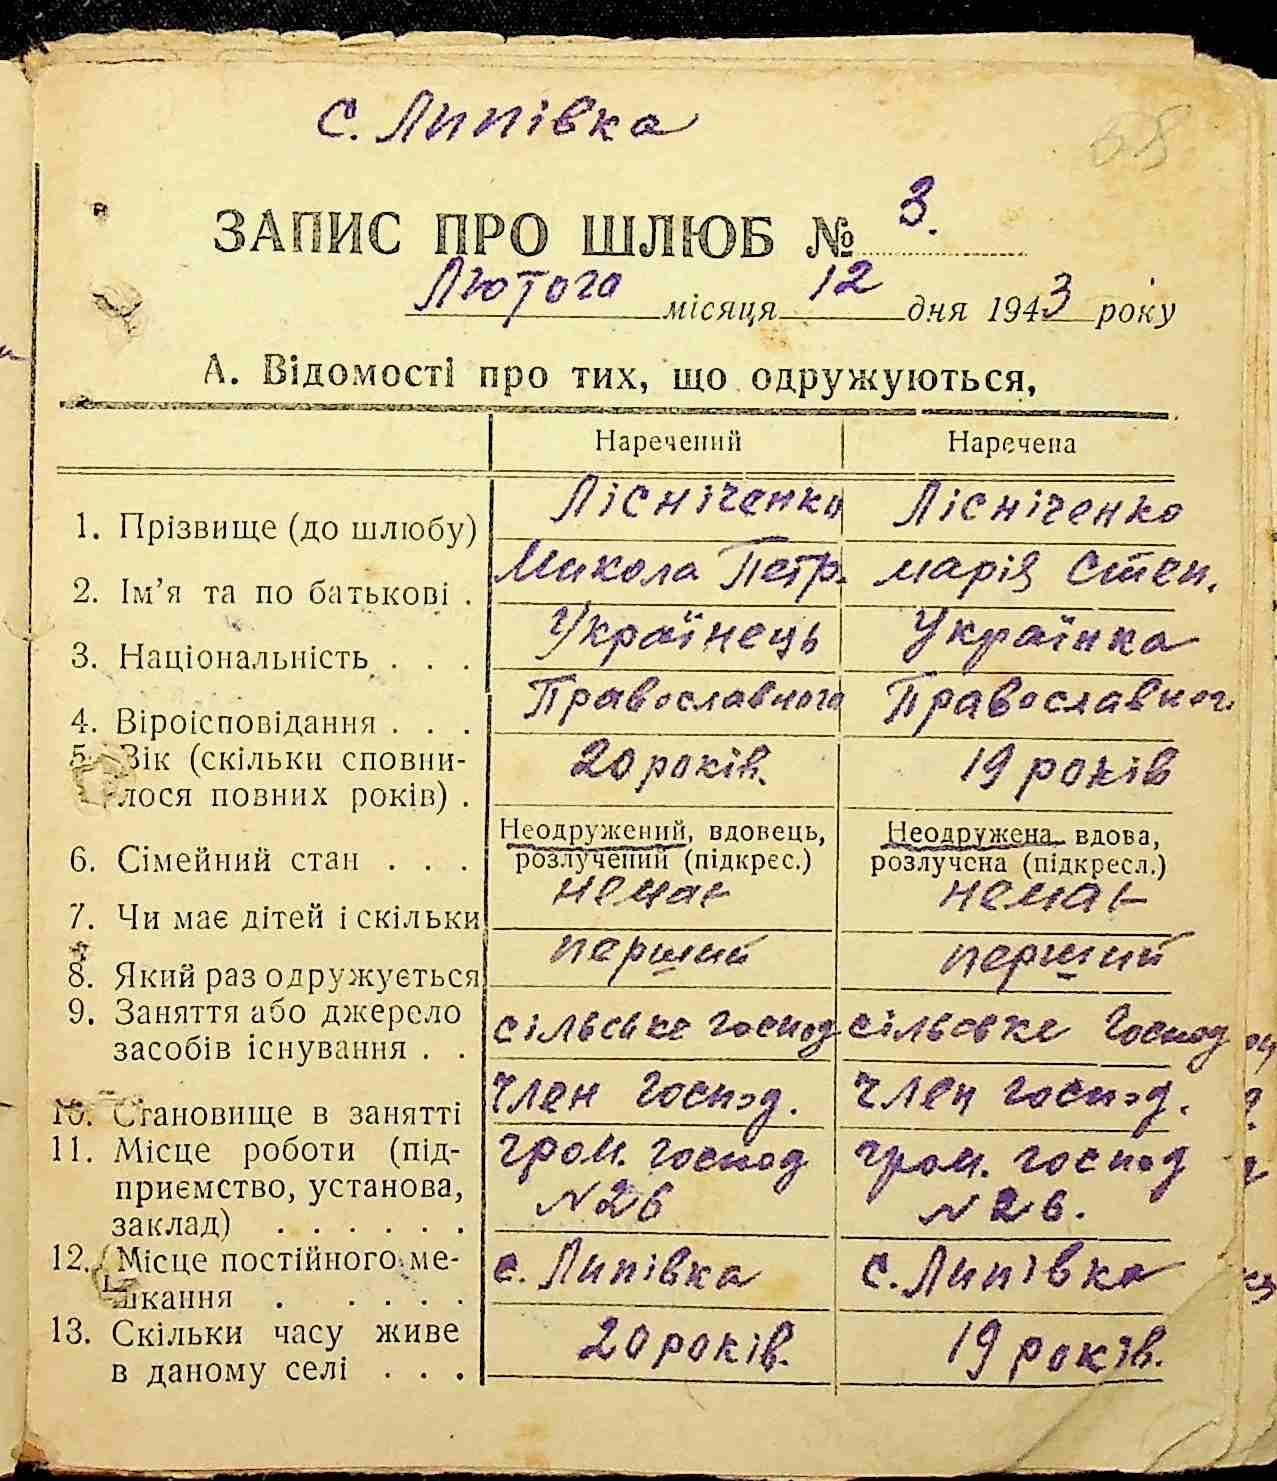 с. Липівка
68
ЗАПИС ПРО ШЛЮБ № 3.
Лютого місяця 12 дня 1943 року
А. Відомості про тих, що одружуються,
Наречений Наречена
1. Прізвище (до шлюбу) Лісніченко Лісніченко
2. Ім’я та по батькові . Микола Петр. марія Степ.
3. Національність . . . Українець Українка
4. Віроісповідання . . . Православного Православног.
5. Вік (скільки сповни-
лося повних років) . 20 років. 19 років
6. Сімейний стан . . . Неодружений, вдовець, розлучений (підкрес.) Неодружена вдова, розлучена (підкресл.)
7. Чи має дітей і скільки немає немає
8. Який раз одружується перший перший
9. Заняття або джерело
засобів існування . . сільське господ сільське господ
10. Становище в занятті член господ. член господ.
11. Місце роботи (під-
приємство, установа,
заклад) . . . . . . гром. господ №26 гром. господ №26.
12. Місце постійного ме-
шкання . . . . . с. Липівка с. Липівка
13. Скільки часу живе
в даному селі . . . 20 років. 19 років.